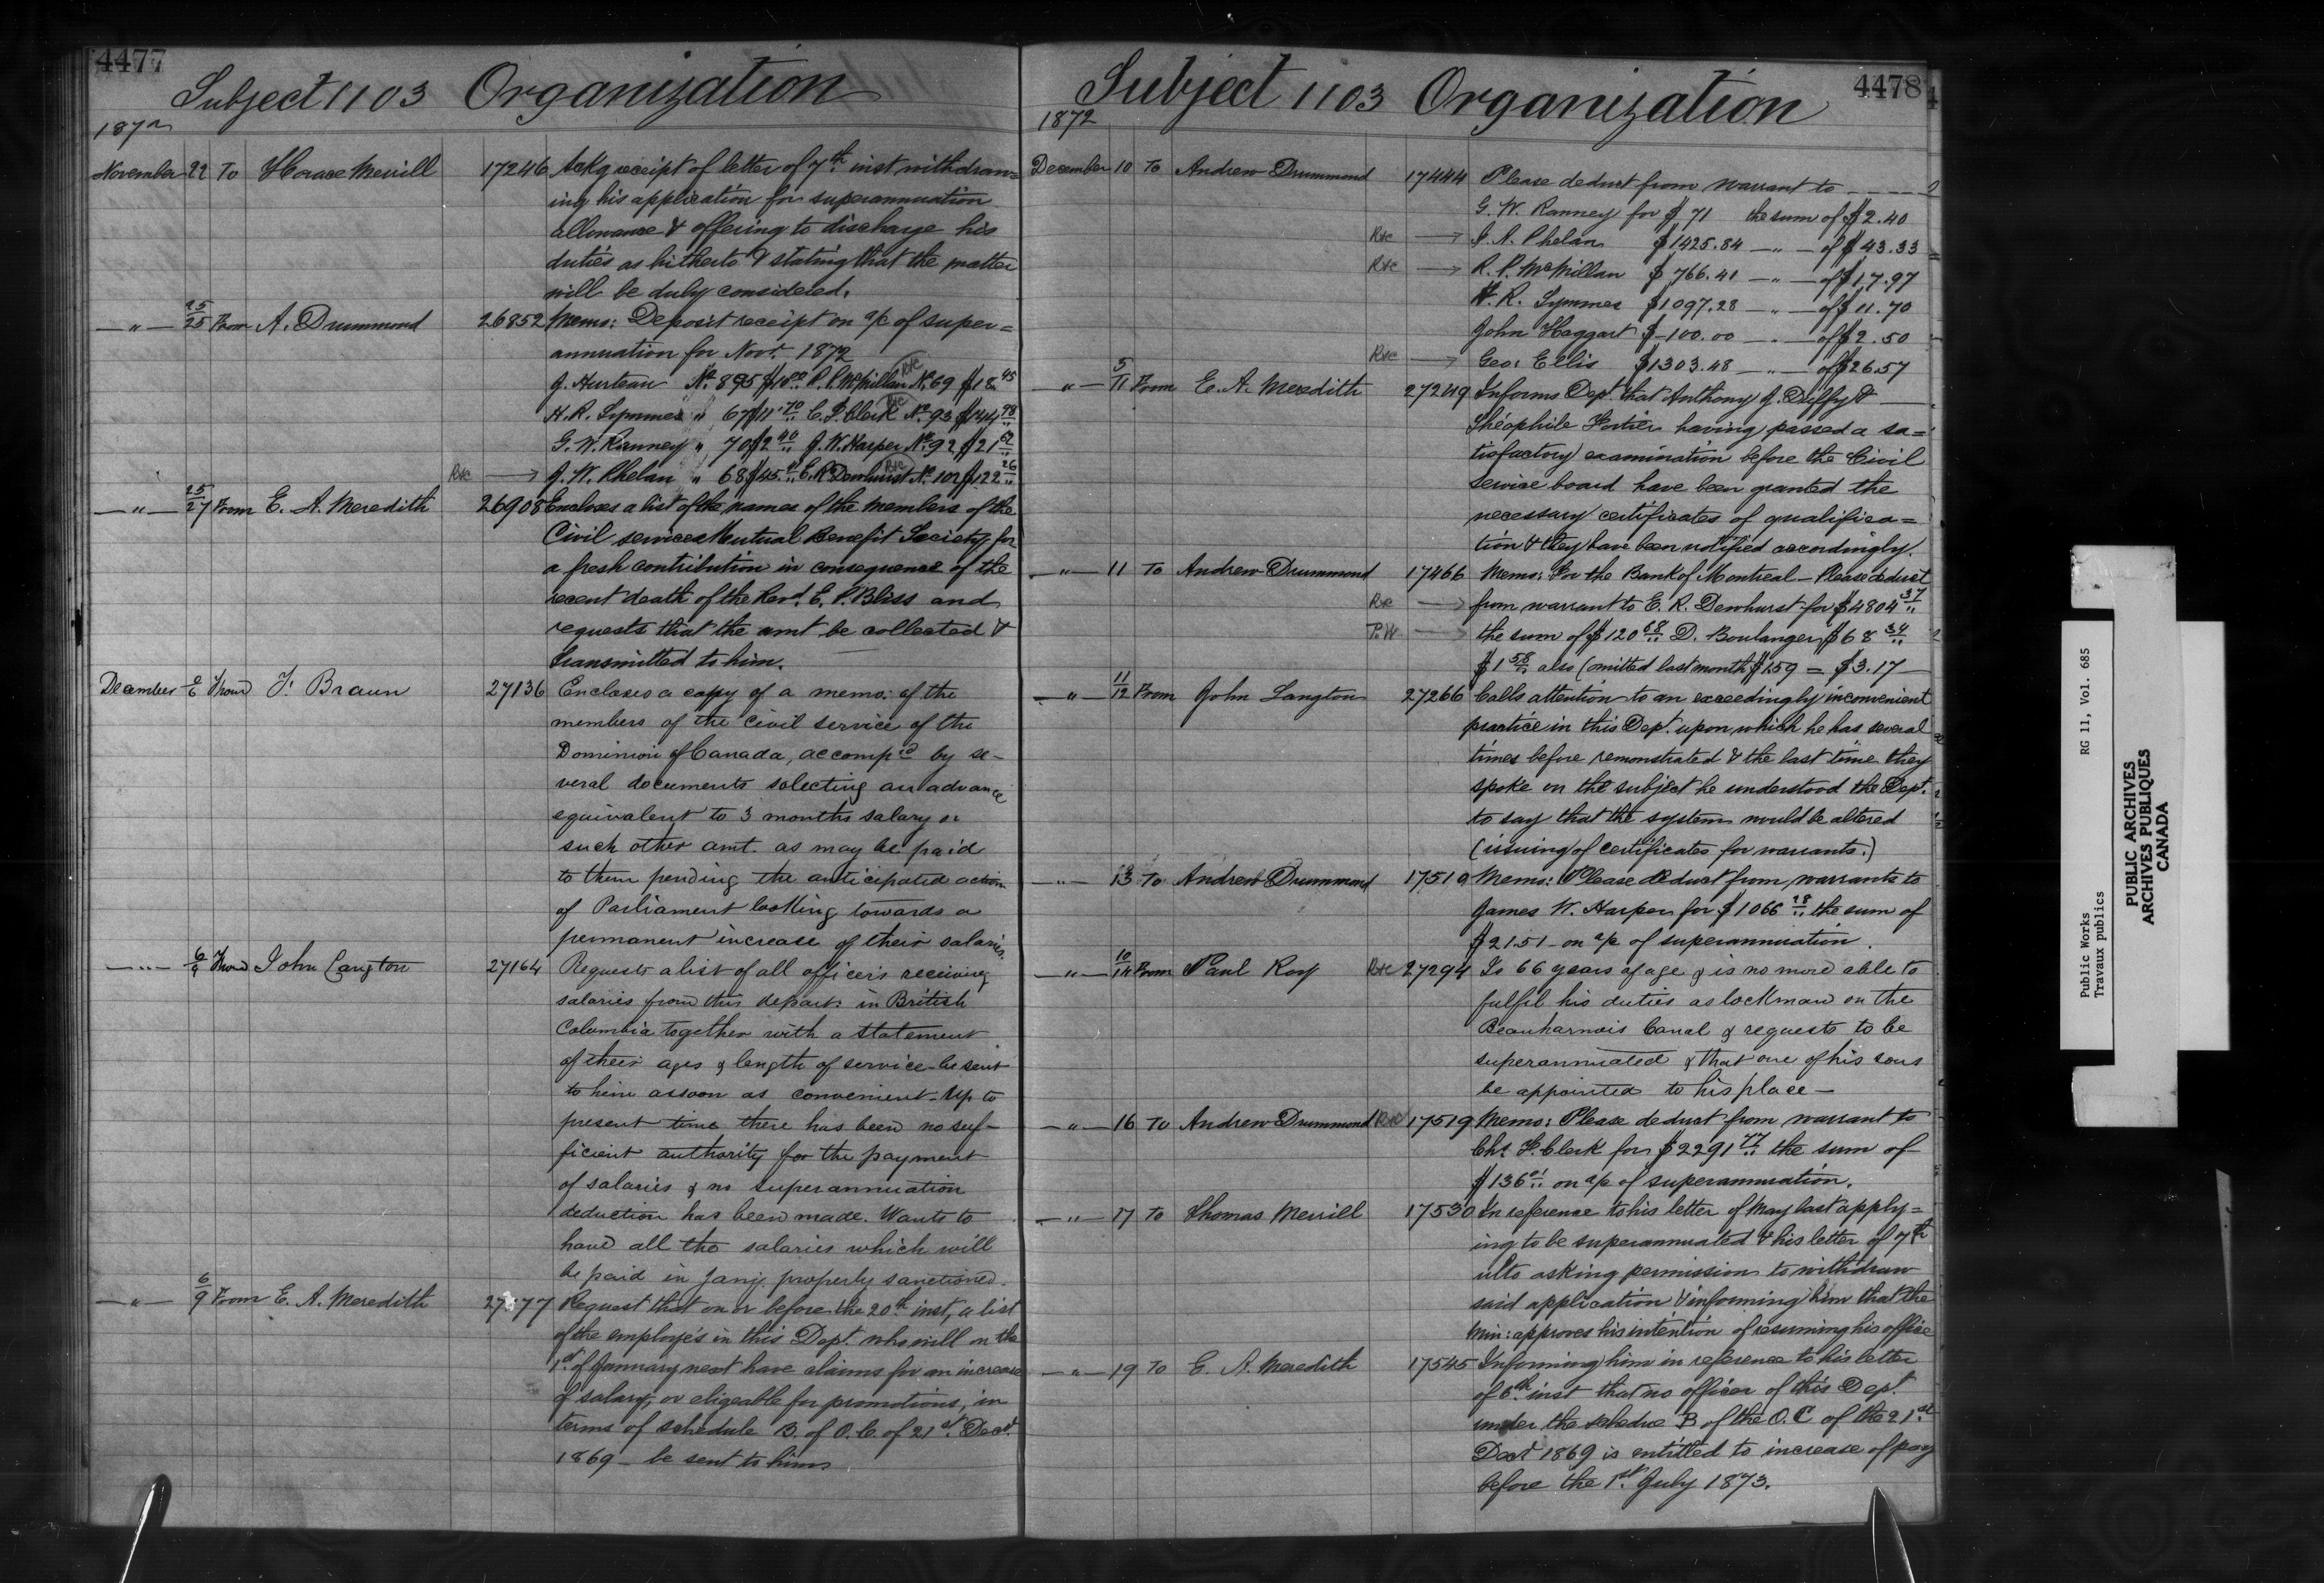 4477
Subject 1103 Organization
1872
November 22 To Horace Merrill 17246 Ackg receipt of letter of 7th inst withdraw=
ing his application for superannuation
allowance & offering to discharge his
duties as hitherto & stating that the matter
will be duly considered.
—"— 25/25 From A. Drummond 26852 Memo: Deposit receipt on a/c of super=
annuation for Novr. 1872
J. Hurteau No. 895 $10.00 R. P. McMillan No. 69 $18.45
H. R. Symmes " 67 $11.70 C. F. Clerk No. 93 $144.98
G. W. Ranney " 70 $2.40 J. W. Harper No. 92 $21.
R&C → J. W. Phelan " 68 $45. E. R. Dewhurst No. 102 $122.26
—"— 25/27 From E. A. Meredith 26908 Encloses a list of the names of the members of the
Civil services Mutual Benefit Society for
a fresh contribution in consequence of the
recent death of the Revd. E. P. Bliss and
requests that the amt be collected &
transmitted to him.
December 2/6 From F. Braun 27136 Encloses a copy of a memo: of the
members of the civil service of the
Dominion of Canada, accompd by se-
veral documents solecting an advance
equivalent to 3 months salary or
such other amt. as may be paid
to them pending the anticipated action
of Parliament looking towards a
permanent increase of their salaries.
—"— 6/9 From John Langton 27164 Requests a list of all officers receiving
salaries from this depart: in British
Columbia together with a statement
of their ages & length of service be sent
to him as soon as convenient. Up to
present time there has been no suf-
ficient authority for the payment
of salaries & no superannuation
deduction has been made. Wants to
have all the salaries which will
be paid in Jany. properly sanctioned.
—"— 6/9 From E. A. Meredith 27177 Request that on or before the 20th inst, a list
of the employés in this Dept. who will on the
1st of January next have claims for an increase
of salary, or eligeable for promotions, in
terms of schedule B. of O. C. of 21st. Decr.
1869 — be sent to him
4478
Subject 1103 Organization
1872
December 10 To Andrew Drummond 17444 Please deduct from warrant to
G. W. Ranney for $71 the sum of $2.40
R&C → J. A. Phelan $1425.84 —"— of $43.33
R&C → R. P. McMillan $766.41 —"— of $17.97
H. R. Symmes $1097.28 —"— of $11.70
John Haggart $100.00 —"— of $2.50
R&C → Geo: Ellis $1303.48 —"— of $26.57
—"— 5/11 From E. A. Meredith 27249 Informs Dept. that Anthony J. Duffy &
Théophile Fortier having passed a sa=
tisfactory examination before the Civil
service board have been granted the
necessary certificates of qualifica=
tion & they have been notified accordingly.
—"— 11 To Andrew Drummond 17466 Memo: For the Bank of Montreal — Please deduct
R&C → from warrant to E. R. Dewhurst for $4804.37
P.W. → the sum of $120.68 D. Boulanger $68.34
$1.58 also (omitted last month $1.59 = $3.17
—"— 11/12 From John Langton 27266 Calls attention to an exceedingly inconvenient
practice in this Dept. upon which he has several
times before remonstrated & the last time they
spoke on the subject he understood the Dept.
to say that the system would be altered
(issuing of certificates for warrants.)
—"— 13 To Andrew Drummond 17519 Memo: Please deduct from warrants to
James W. Harper for $1066.28 the sum of
$21.51 on a/c of superannuation.
—"— 10/14 From Paul Roy R&C 27294 Is 66 years of age & is no more able to
fulfil his duties as lockman on the
Beauharnois Canal & requests to be
superannuated & that one of his sons
be appointed to his place —
—"— 16 To Andrew Drummond R&C 17519 Memo: Please deduct from warrant to
Chs. F. Clerk for $2291.77 the sum of
$136.01 on a/c of superannuation.
—"— 17 To Thomas Merrill 17530 In reference to his letter of May last apply=
ing to be superannuated & his letter of 7th
ulto asking permission to withdraw
said application & informing him that the
Min: approves his intention of resuming his office
—"— 19 To E. A. Meredith 17545 Informing him in reference to his letter
of 6th. inst that no officer of this Dept.
under the schedue B of the O. C of the 21st
Decr 1869 is entitled to increase of pay
before the 1st. July 1873.
Public Works RG 11, Vol. 685
Travaux publics
PUBLIC ARCHIVES
ARCHIVES PUBLIQUES
CANADA